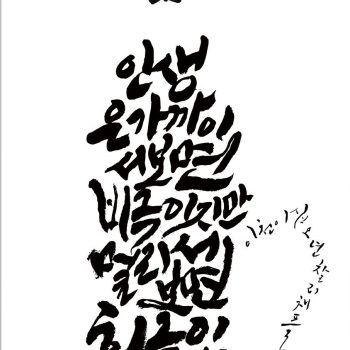 인생
은 가까이
서 보면
비극이지만
멀리서
보면
희극이
이천이십오년 찰리 채플